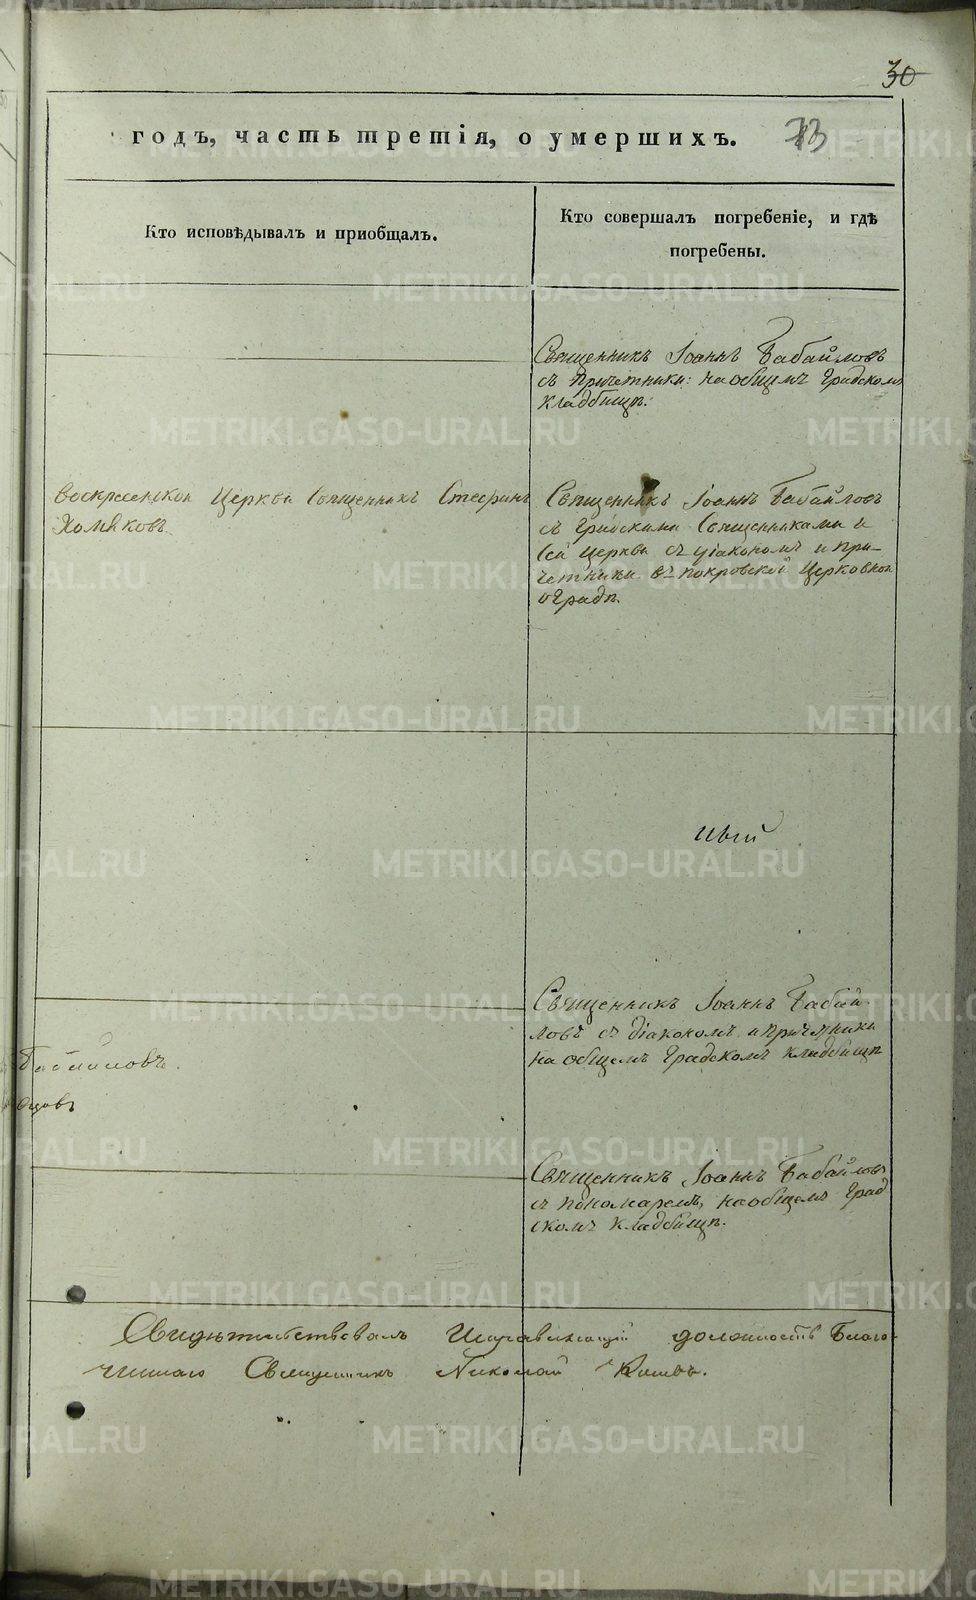 30
годъ, часть третія, о умершихъ. 73
Кто исповѣдывалъ и приобщалъ.
Кто совершалъ погребеніе, и гдѣ
погребены.
Священникъ Іоаннъ Бабайловъ
съ причетники: на общемъ градскомъ
кладбищѣ.
Воскресенской Церкви Священникъ Стефанъ
Хомяковъ
Священникъ Іоаннъ Бабайловъ
съ градскими Священниками и
сей церкви съ діакономъ и при-
четники въ покровской Церковной
оградѣ.
Священникъ Іоаннъ Бабай
ловъ съ діакономъ и причетники
на общемъ градскомъ кладбищѣ
Бабайловъ.
Священникъ Іоаннъ Бабайловъ
съ пономаремъ, на общемъ град
скомъ кладбищѣ.
Свидѣтельствовалъ Исправляющій должность Благо-
чиннаго Священникъ Николай
METRIKI.GASO-URAL.RU